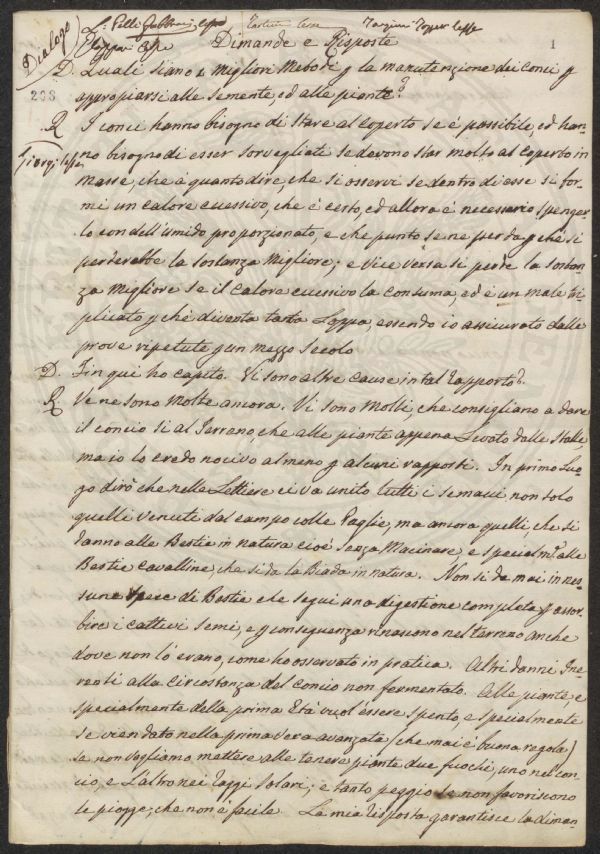 Dialogo
Dimande e Risposte
1
D. Quali siano i migliori Metodi p la manutenzione dei Conci p
208
appropiarsi alle semente, ed alle piante?
R I conci hanno bisogno di stare al coperto se é possibile, ed han-
no bisogno di esser sorvegliati se devono star molto al coperto in
masse, che é quanto dire, che si osservi se dentro di esse si for-
mi un calore eccessivo, che é certo, ed allora é necessario spenger
lo con dell'umido proporzionato, e che punto se ne sperda p ché si
perderebbe la sostanza migliore; e vice versa si perde la sostan-
za migliore se il calore eccessivo la consuma, ed é un male tri-
plicato p ché diventa tanta Loppa, essendo io assicurato dalle
prove ripetute p un mezzo secolo
D. Fin qui ho capito. Vi sono altre cause in tal rapporto?
R. Ve ne sono molte ancora. Vi sono molti, che consigliano a dare
il concio si al Terrano, che alle piante appena Levato dalle stalle
ma io lo credo nocivo almeno p alcuni rapporti. In primo Luo-
go dirò che nelle Lettiere ci va unito tutti i semacci, non solo
quelli venuti dal campo colle Paglie, ma ancora quelli, che si
danno alle Bestie in natura cioé senza Macinare, e specialmte alle
Bestie Cavalline, che si da la Biada in natura. Non si da mai in nes-
suna spece di Bestie che segui una digestione completa p assor-
bire i cattivi semi, e p conseguenza rinascono nel terreno anche
dove non l'erano, come ho osservato in pratica. Altri danni Ine-
renti alla Circostanza del Concio non fermentato. Alle piante, e
specialmente della prima Età vuol'éssere spento, e specialmente
se vien dato nella primavera avanzata (che mai é buona regola)
se non vogliamo mettere alle tenere piante due fuochi, uno nel con-
cio, e l'altro nei raggi solari; e tanto peggio se non favoriscono
le piogge, che non é facile. La mia risposta garantisce la diman-